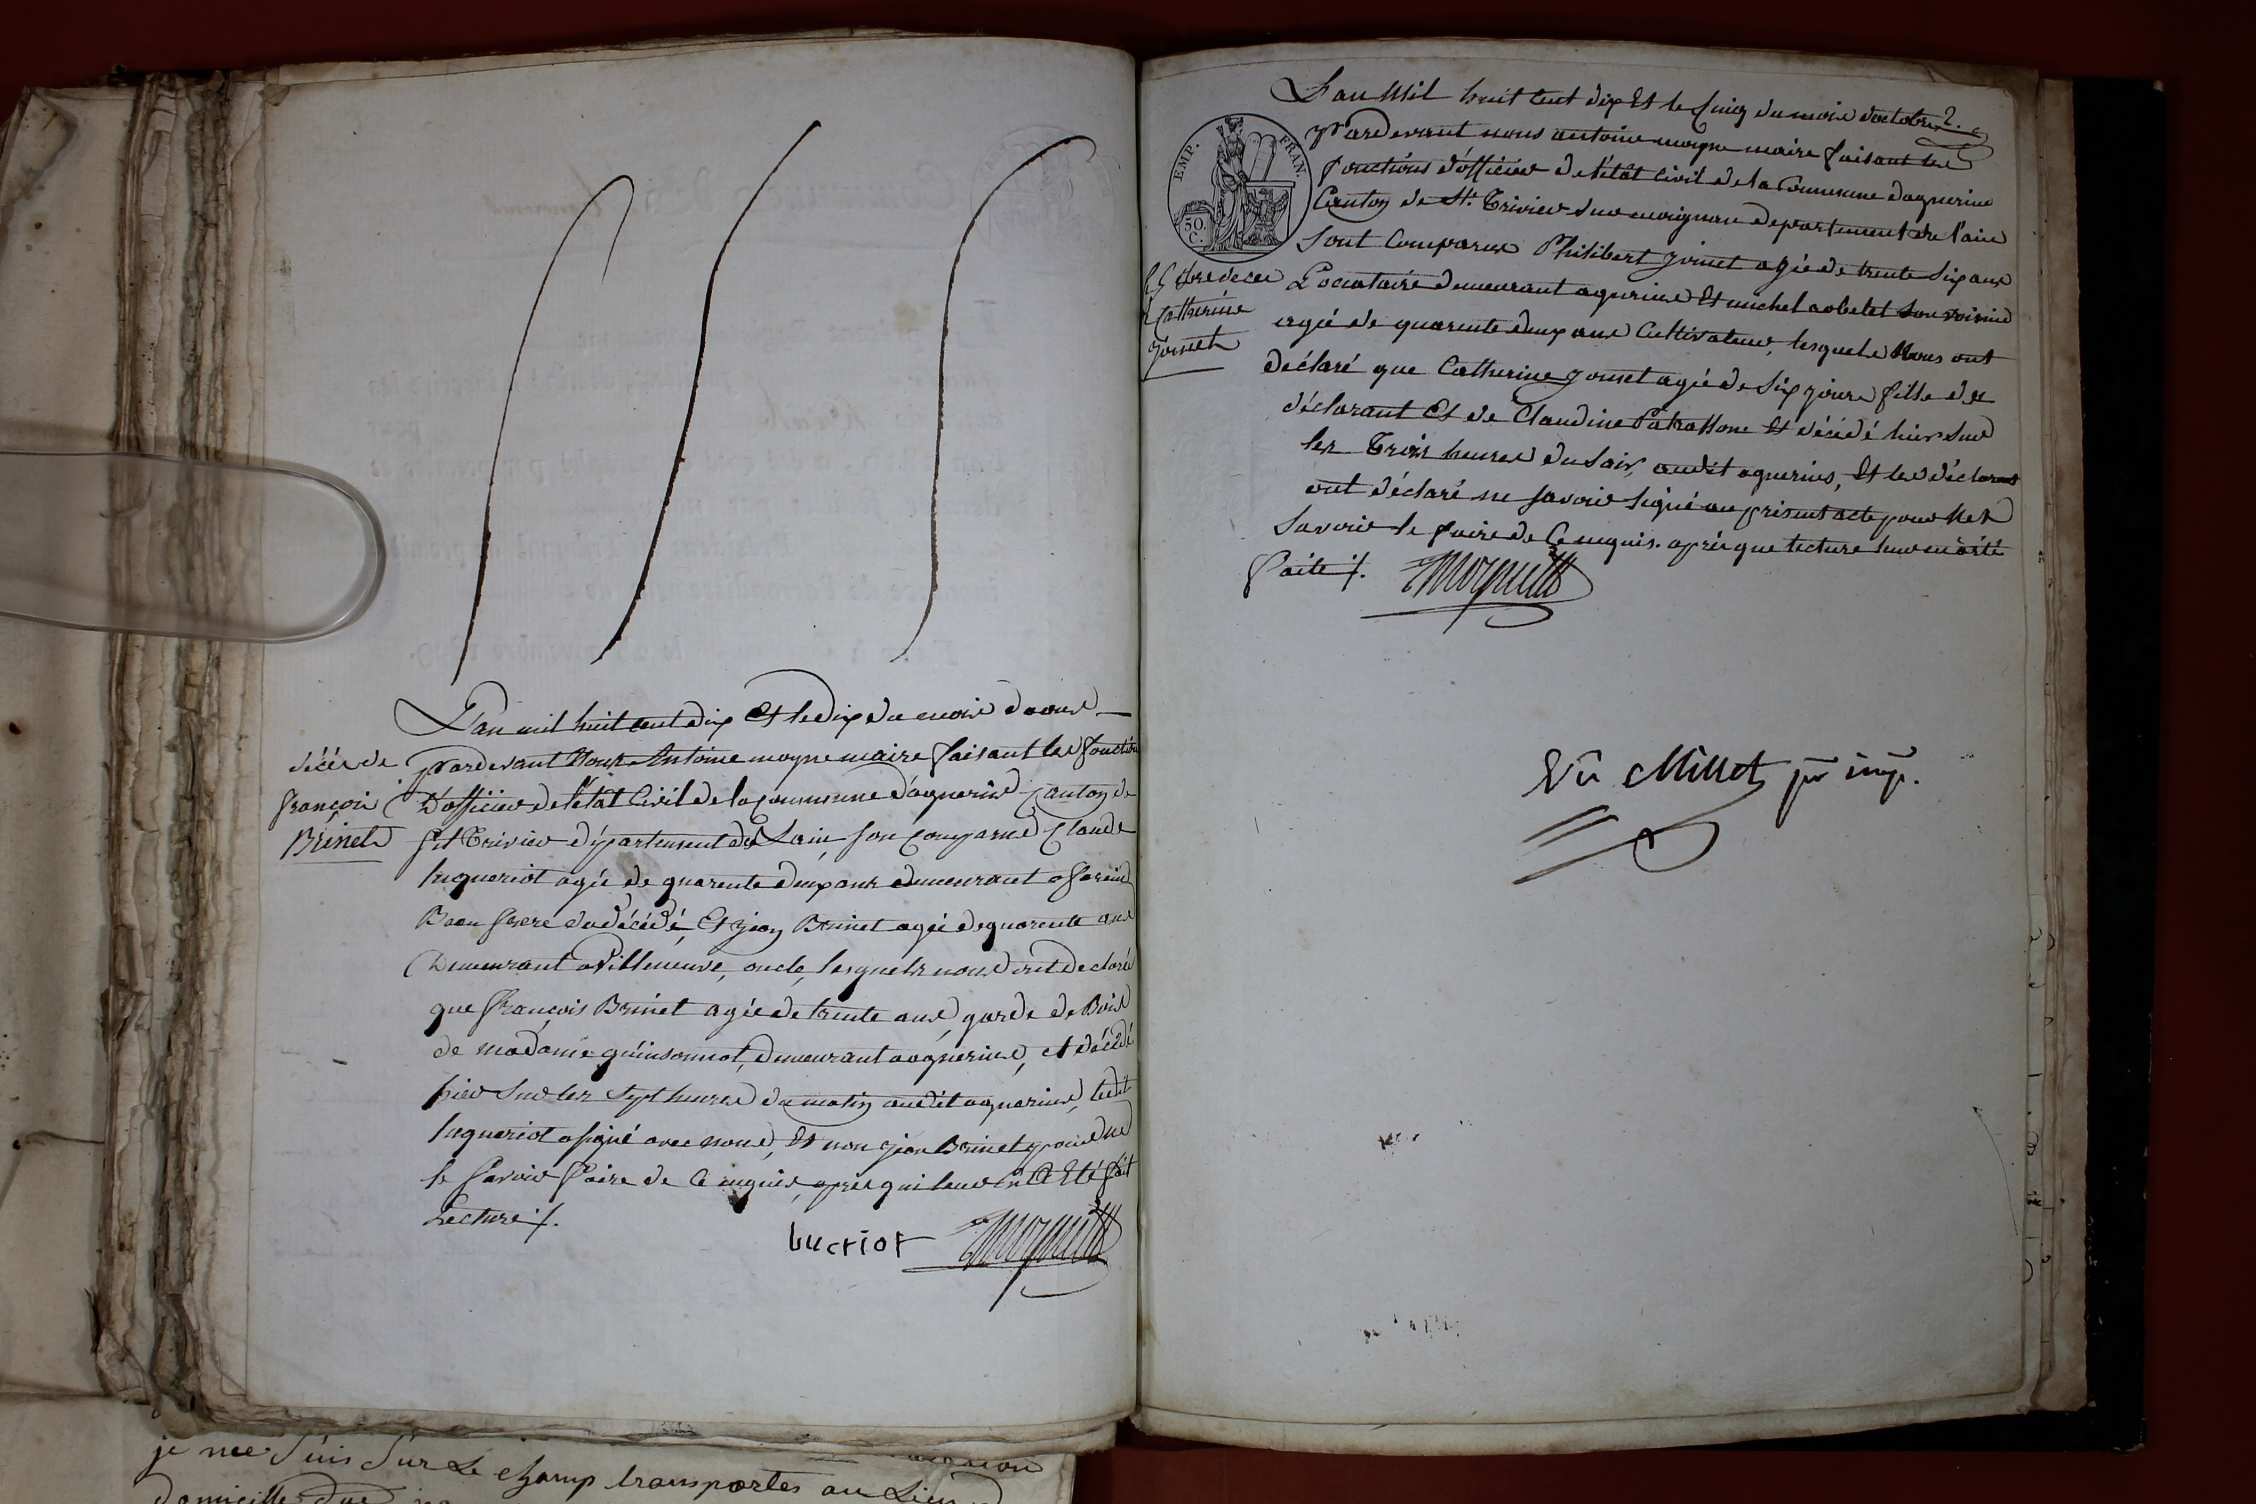 L'an mil huit cent dix Et le dix du mois d'aout
décès de
françois
Brinet
pardevant Nous Antoine moyne maire faisant les fonction
D'officier de l'état Civil de la Commune d'agnerins Canton de
St Trivier département de Lain, son Comparus Claude
luqueriot agée de quarente deux ans demeurant a fareins
Beau frere du décédé, Et jean Brinet agée de quarente ans
Demeurant a Villeneuve, oncle, lesquels nous ont declaré
que françois Brinet agée de trente ans, garde de Bois
de madame quinsonnat, demeurant a agnerins, et décédé
hier sur les sept heures du matin audit agnerins, ledit
luqueriot a signé avec nous, Et non jean Brinet pour ne
le savoir faire de Ce enquis, apres qui leur en A Eté fait
Lecture ./.
Lucriot
L'an Mil huit Cent dix Et le Cinq du mois d'octobre
pardevant nous antoine moyne maire faisant les
fonctions d'officier de l'état Civil de la Commune d'agnerins
Canton de St. Trivier sur moignans departement de l'ain
Sont Comparus Philibert joinet agée de trente six ans
EMP.
FRAN.
50
C.
decer
Catherine
joinet
Locataire demeurant agnerins Et michel aobelet son voisin
agée de quarente deux ans Cultivateur, lesquels Nous ont
déclaré que Catherine joinet agée de six jours fille du
déclarant Et de Claudine Et décédé hier sur
les Trois heures du soir, audit agnerins, Et les déclarant
ont déclaré ne savoir signé au présent acte pour Ne
savoir le faire de Ce enquis. après que lecture leur en a été
faite ./.
Vu Millet pr imp.
je me suis sur le champ transportes au Lieu